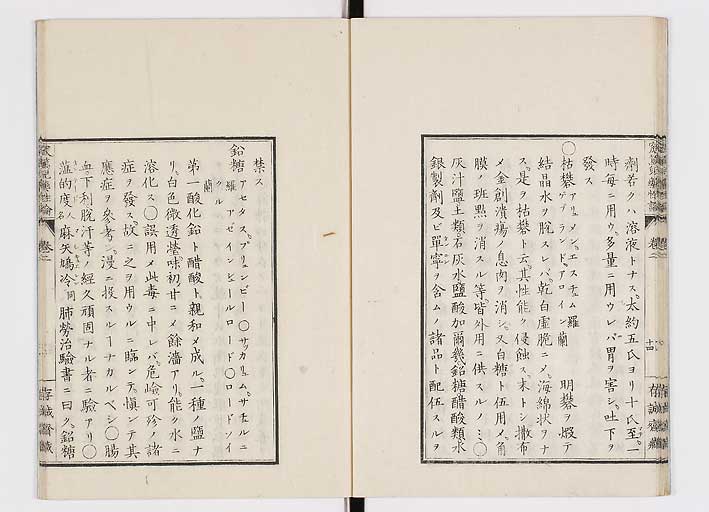 劑若クハ溶液トナス太約五氏ヨリ十氏至一
時每ニ用ウ多量ニ用ウレバ胃ヲ害シ吐下ヲ
發ス
〇枯礬 アリュメンエスチュム 羅 明礬ヲ煆テ
ランドアロイン 蘭
結晶水ヲ脫スレバ乾白虛脆ニメ海綿狀ヲナ
ス是ヲ枯礬ト云其性能ク侵蝕ス末トシ撒布
メ金創潰瘍ノ息肉ヲ消シ又白糖ト伍用メ角
膜ノ斑點ヲ消スル等皆外用ニ供スルノミ〇
灰汁鹽土類石灰水鹽酸加爾幾鉛糖醋酸類水
銀製劑及ビ單寧ヲ含ムノ諸品ト配伍スルヲ
卷之
十四
存誠齋藏
禁ス
鉛糖 アセタスプリュンビー〇サカリュムサチュルニ
羅 アゼインヒールロード〇ロードソイ
クル 蘭
第一酸化鉛ト醋酸ト親和メ成ル一種ノ鹽ナ
リ白色微透瑩味初甘ニメ餘濇アリ能ク水ニ
溶化ス〇誤用メ此毒ニ中レバ危嶮可殄ノ諸
症ヲ發ス故ニ之ヲ用ウルニ臨ンテ愼ンテ其
應症ヲ參考シ漫ニ投スルーナカルベシ〇腸
血下利脫汗等ノ經久頑固ナル者ニ驗アリ〇
蒀的度名 麻矢鳩冷同 肺勞治驗書ニ曰ク鉛糖
卷之
存誠齋藏